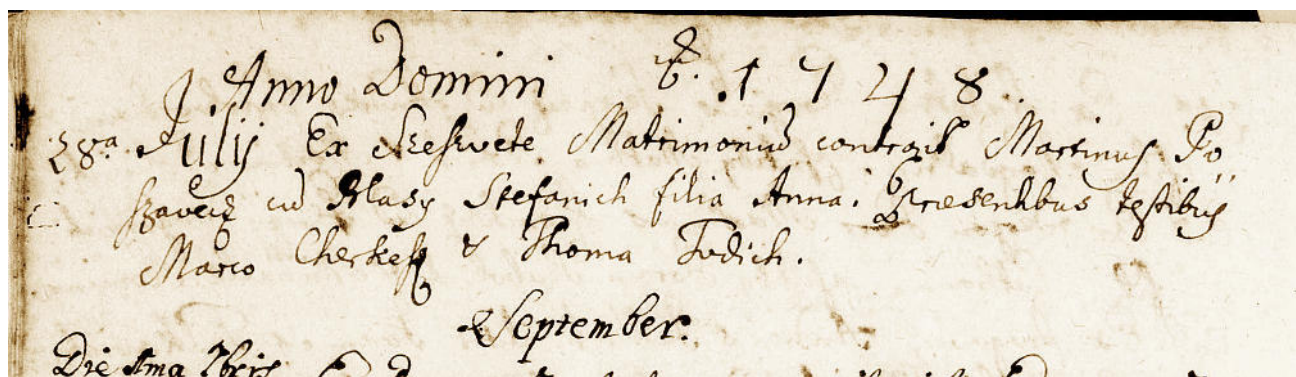 Anno Domini 1748.
28va. Julij Ex Szeszvete Matrimoniu contraxit Martinus Po
szavecz cu Blasy Stefanich filia Anna. Praesentibus testibus
Marco Cherkesz & Thoma Tudich.
September.
Die 7bris